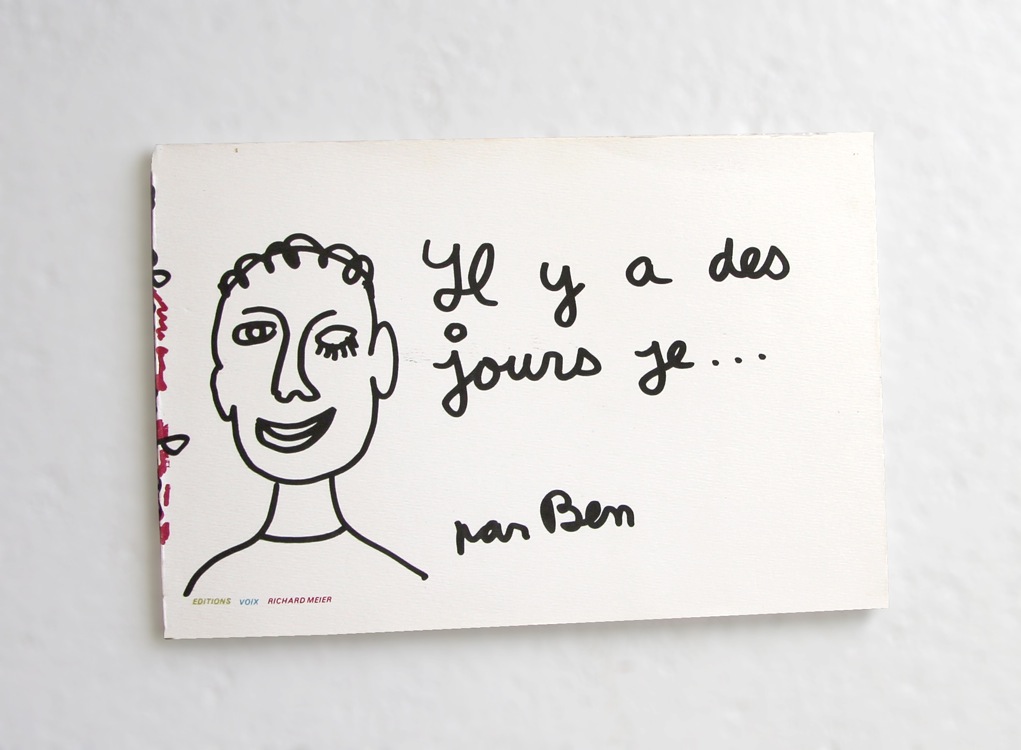 Il y a des
jours je...
par Ben
EDITIONS VOIX RICHARD MEIER